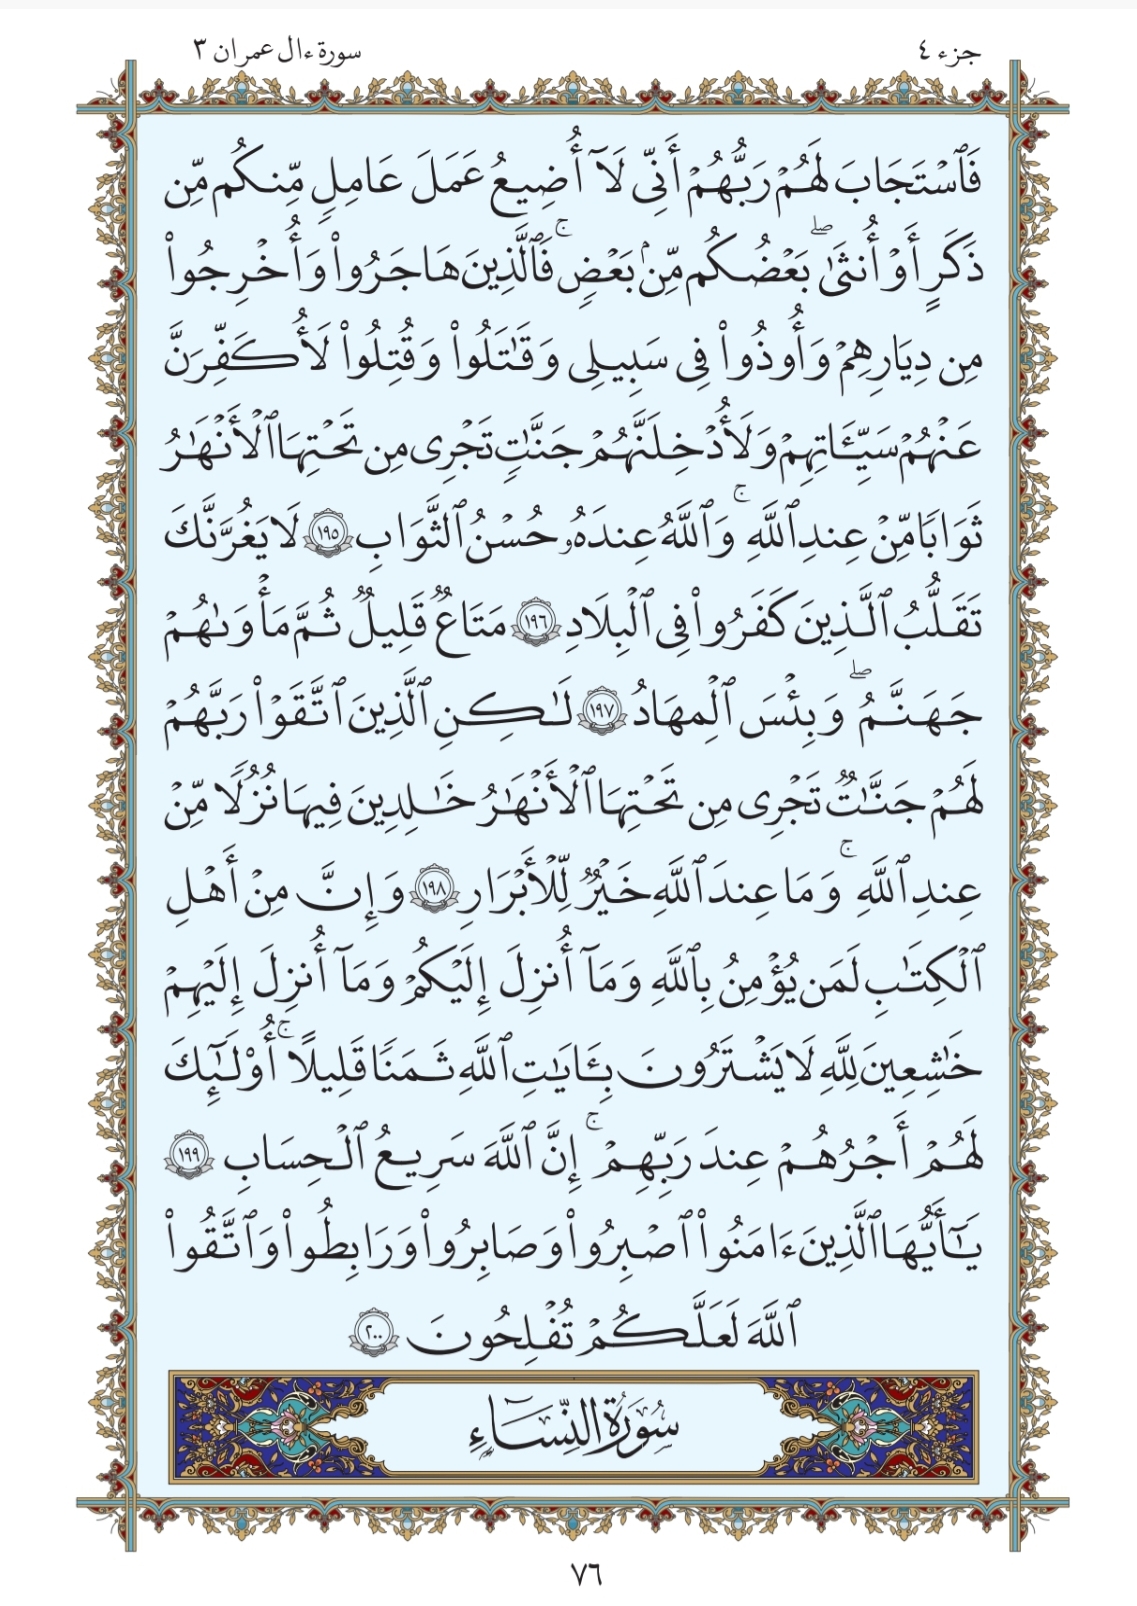 جزء ٤
سورة ءال عمران ٣
فَٱسْتَجَابَ لَهُمْ رَبُّهُمْ أَنِّى لَآ أُضِيعُ عَمَلَ عَامِلٍ مِّنكُم مِّن
ذَكَرٍ أَوْ أُنثَىٰ ۖ بَعْضُكُم مِّنۢ بَعْضٍ ۚ فَٱلَّذِينَ هَاجَرُوا۟ وَأُخْرِجُوا۟
مِن دِيَارِهِمْ وَأُوذُوا۟ فِى سَبِيلِى وَقَـٰتَلُوا۟ وَقُتِلُوا۟ لَأُكَفِّرَنَّ
عَنْهُمْ سَيِّـَٔاتِهِمْ وَلَأُدْخِلَنَّهُمْ جَنَّـٰتٍ تَجْرِى مِن تَحْتِهَا ٱلْأَنْهَـٰرُ
ثَوَابًا مِّنْ عِندِ ٱللَّهِ ۚ وَٱللَّهُ عِندَهُۥ حُسْنُ ٱلثَّوَابِ ١٩٥ لَا يَغُرَّنَّكَ
تَقَلُّبُ ٱلَّذِينَ كَفَرُوا۟ فِى ٱلْبِلَادِ ١٩٦ مَتَاعٌ قَلِيلٌ ثُمَّ مَأْوَىٰهُمْ
جَهَنَّمُ ۖ وَبِئْسَ ٱلْمِهَادُ ١٩٧ لَـٰكِنِ ٱلَّذِينَ ٱتَّقَوْا۟ رَبَّهُمْ
لَهُمْ جَنَّـٰتٌ تَجْرِى مِن تَحْتِهَا ٱلْأَنْهَـٰرُ خَـٰلِدِينَ فِيهَا نُزُلًا مِّنْ
عِندِ ٱللَّهِ ۚ وَمَا عِندَ ٱللَّهِ خَيْرٌ لِّلْأَبْرَارِ ١٩٨ وَإِنَّ مِنْ أَهْلِ
ٱلْكِتَـٰبِ لَمَن يُؤْمِنُ بِٱللَّهِ وَمَآ أُنزِلَ إِلَيْكُمْ وَمَآ أُنزِلَ إِلَيْهِمْ
خَـٰشِعِينَ لِلَّهِ لَا يَشْتَرُونَ بِـَٔايَـٰتِ ٱللَّهِ ثَمَنًا قَلِيلًا ۗ أُو۟لَـٰٓئِكَ
لَهُمْ أَجْرُهُمْ عِندَ رَبِّهِمْ ۗ إِنَّ ٱللَّهَ سَرِيعُ ٱلْحِسَابِ ١٩٩
يَـٰٓأَيُّهَا ٱلَّذِينَ ءَامَنُوا۟ ٱصْبِرُوا۟ وَصَابِرُوا۟ وَرَابِطُوا۟ وَٱتَّقُوا۟
ٱللَّهَ لَعَلَّكُمْ تُفْلِحُونَ ٢٠٠
سُورَةُ النِّسَاءِ
٧٦